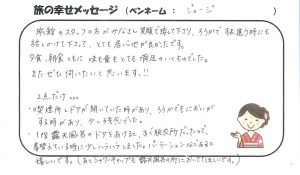 旅の幸せメッセージ（ペンネーム： ジョージ ）
旅館のスタッフの方がみなさん笑顔で接して下さり、ろうかで お違う時にも
話しかけて下さって、とても居心地が良かったです。
夕食、朝食ともに 味も量もとても満足のいくものでした。
またぜひ伺いたいと思います!!
2点だけ…
・喫煙所とドアが開いていた時があり、ろうかでもにおいが
する時があり、少し残念でした。
・1F 露天風呂のドアをあけると、すぐ脱衣所だったので、
着替えている時に少しハラハラしました。パーテーションなどあると
嬉しいです。(あとシャワーキャップも露天風呂の所に置いてほしいです。)